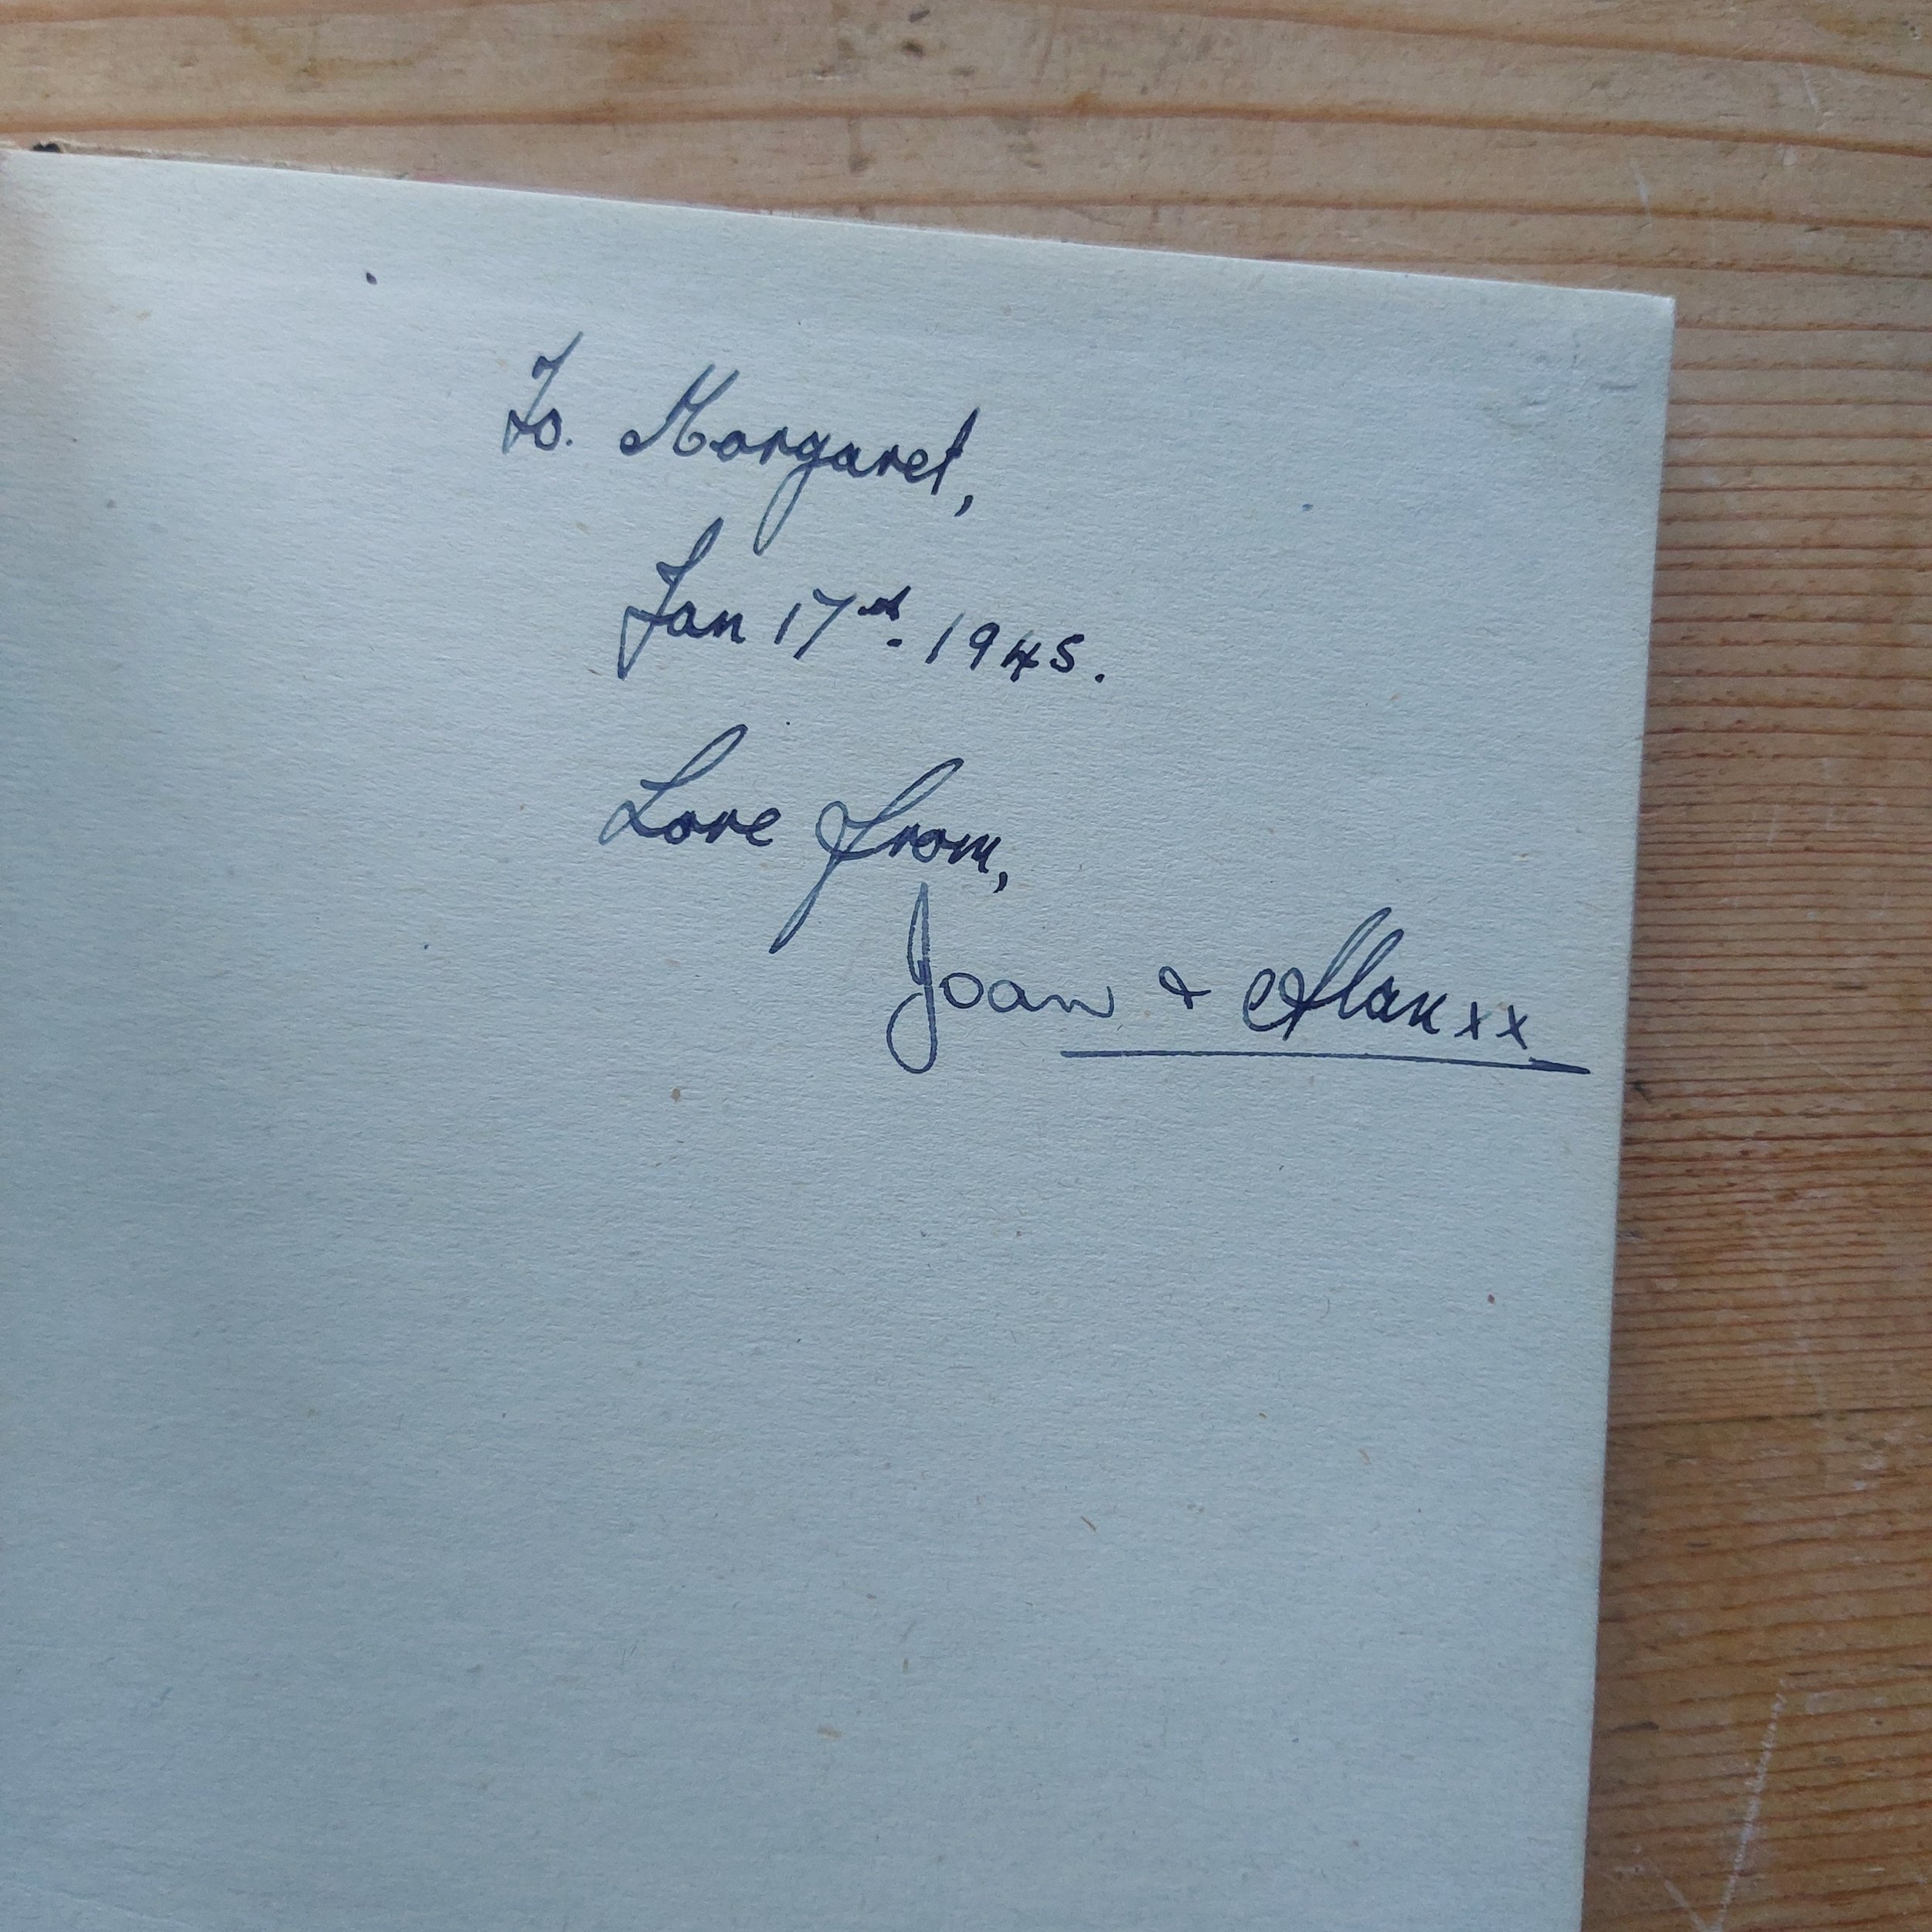 To. Margaret,
Jan 17th. 1945.
Love from,
Joan & Alan xx